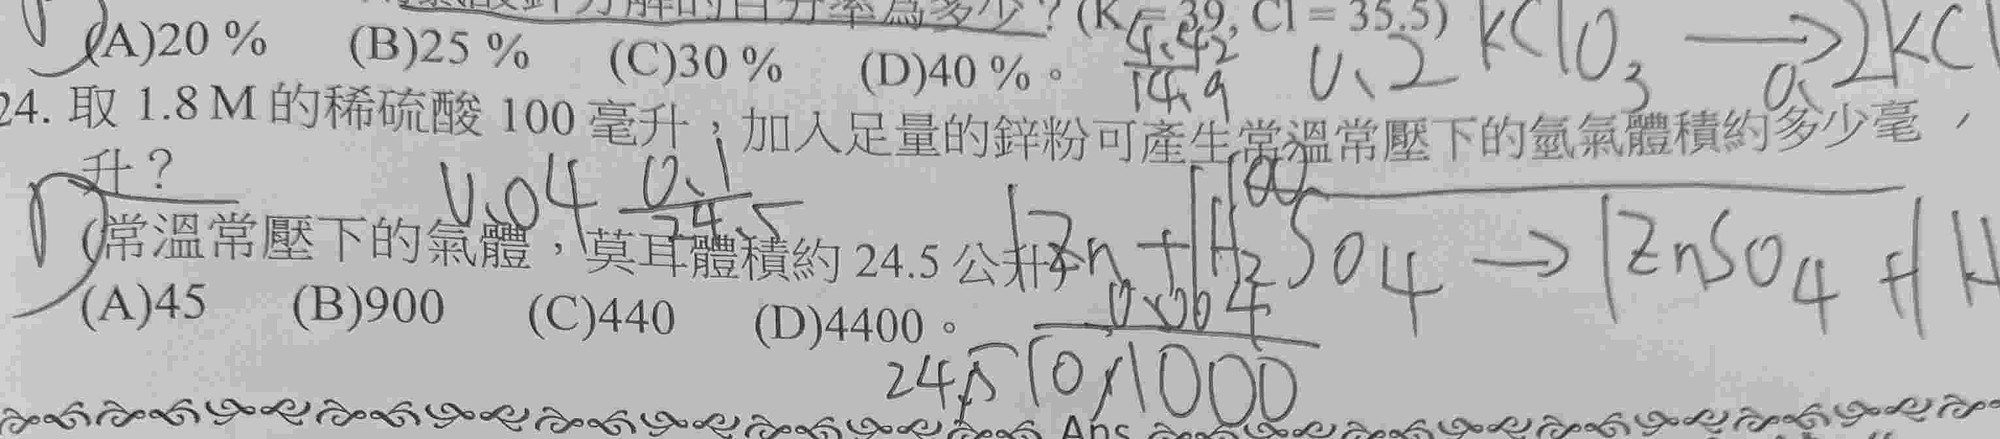 氯酸鉀分解的百分率為多少？(K = 39, Cl = 35.5)
(A)20 % (B)25 % (C)30 % (D)40 %。
4.42
14.9
0.2 KClO3 → 2KCl
24. 取 1.8 M 的稀硫酸 100 毫升，加入足量的鋅粉可產生常溫常壓下的氫氣體積約多少毫
升？
0.04 0.1
24.5
(常溫常壓下的氣體，莫耳體積約 24.5 公升)
1Zn + 1H2SO4 → 1ZnSO4 + 1H
(A)45 (B)900 (C)440 (D)4400。
0.004
24.5
Ans